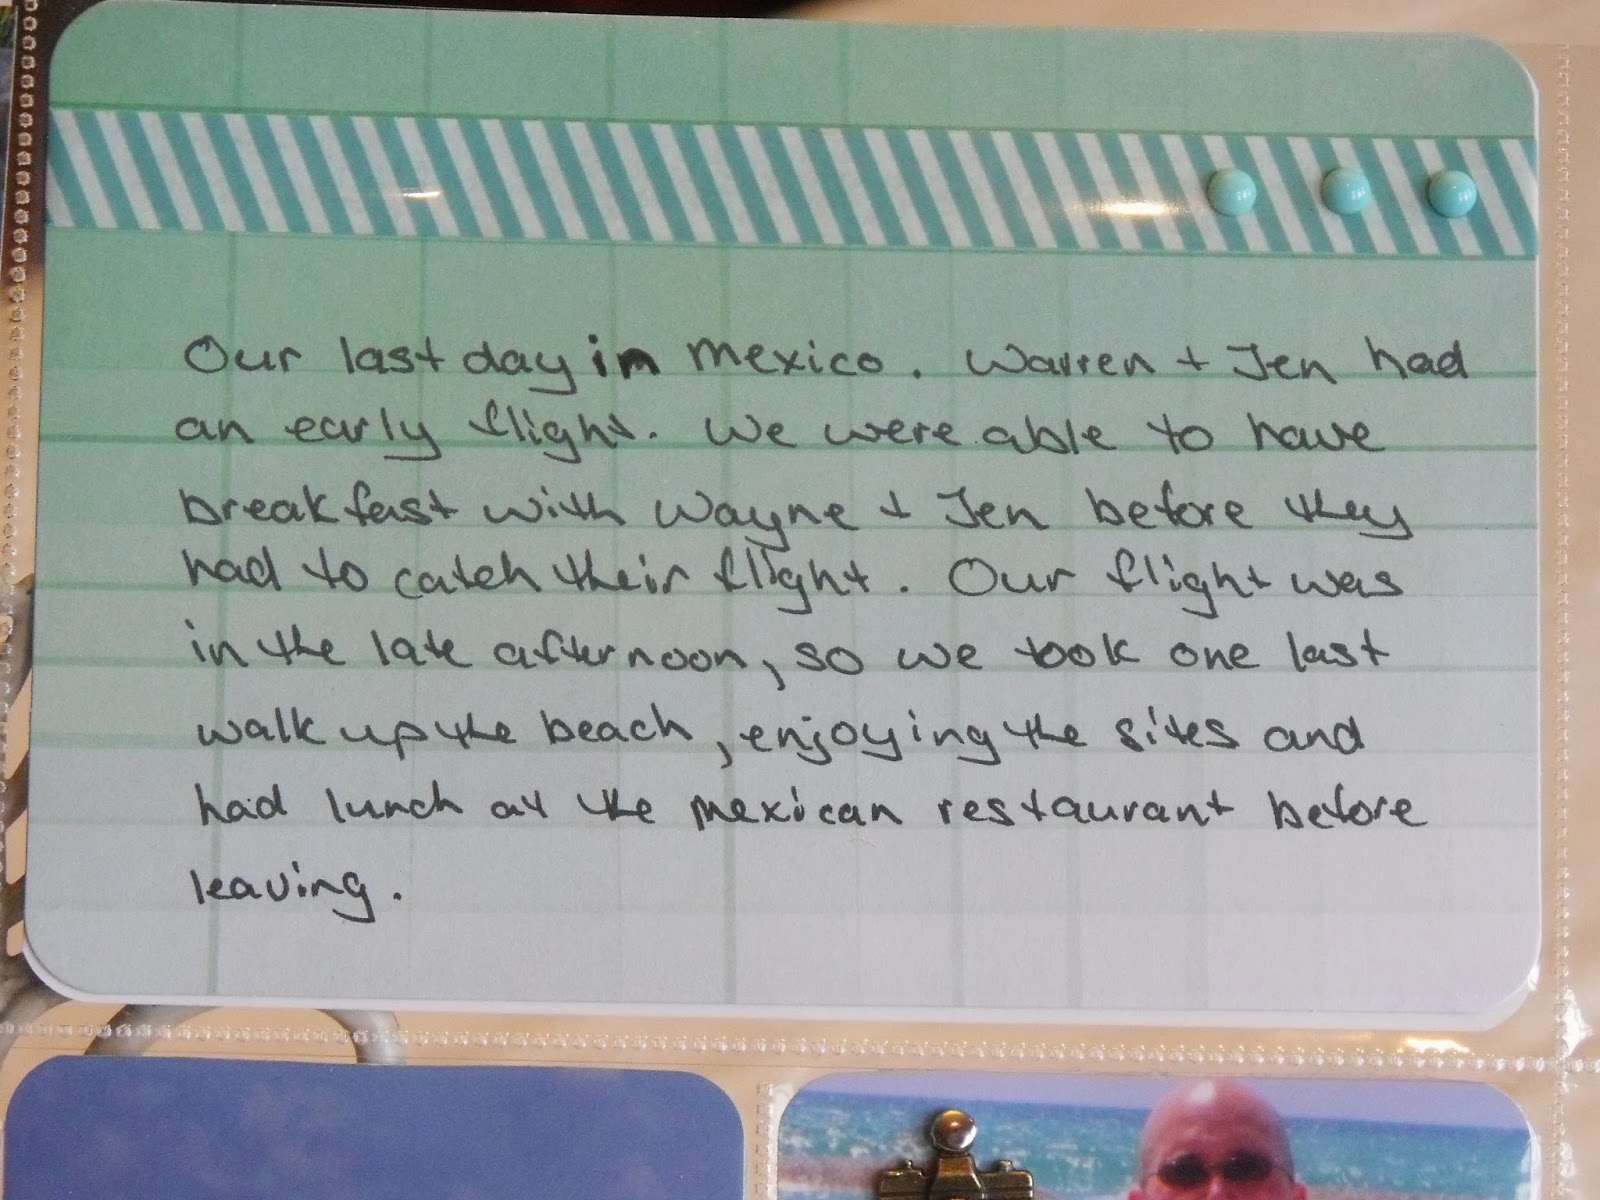 Our last day in Mexico. Warren + Jen had
an early flight. We were able to have
breakfast with Wayne + Jen before they
had to catch their flight. Our flight was
in the late afternoon, so we took one last
walk up the beach, enjoying the sites and
had lunch at the Mexican restaurant before
leaving.